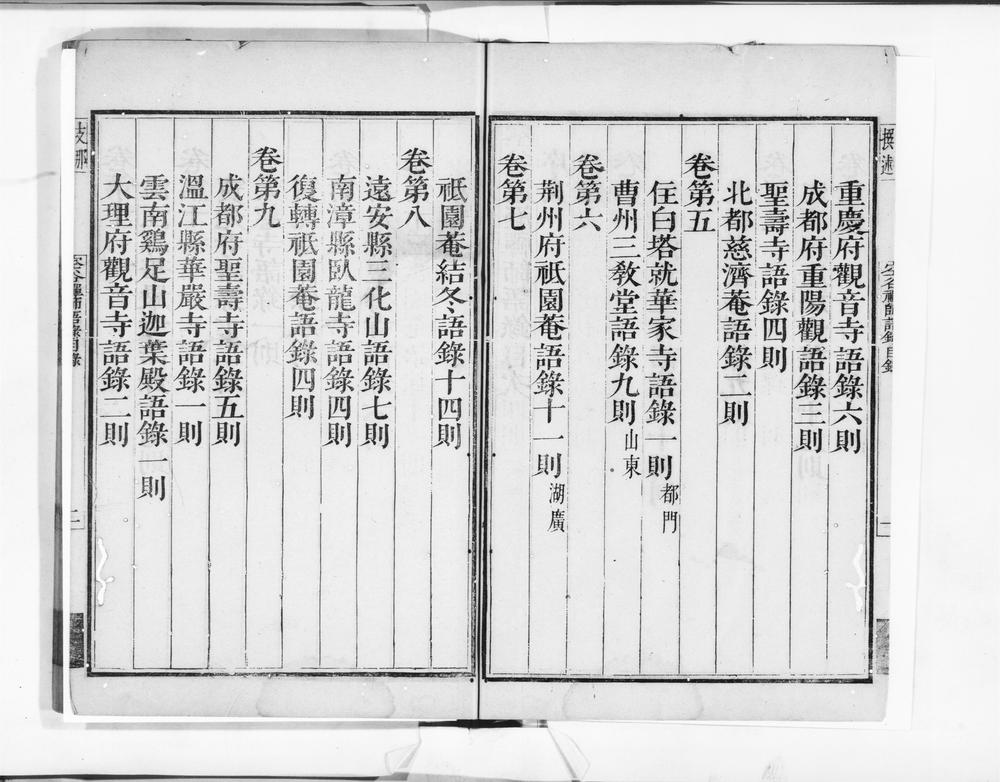 重慶府觀音寺語錄六則
成都府重陽觀語錄三則
聖壽寺語錄四則
北都慈濟菴語錄二則
卷第五
住白塔就華家寺語錄一則都門
曹州三教堂語錄九則山東
卷第六
荆州府祇園菴語錄十一則湖廣
卷第七
祇園菴結冬語錄十四則
卷第八
遠安縣三化山語錄七則
南漳縣臥龍寺語錄四則
復轉祇園菴語錄四則
卷第九
成都府聖壽寺語錄五則
溫江縣華嚴寺語錄一則
雲南鷄足山迦葉殿語錄一則
大理府觀音寺語錄二則